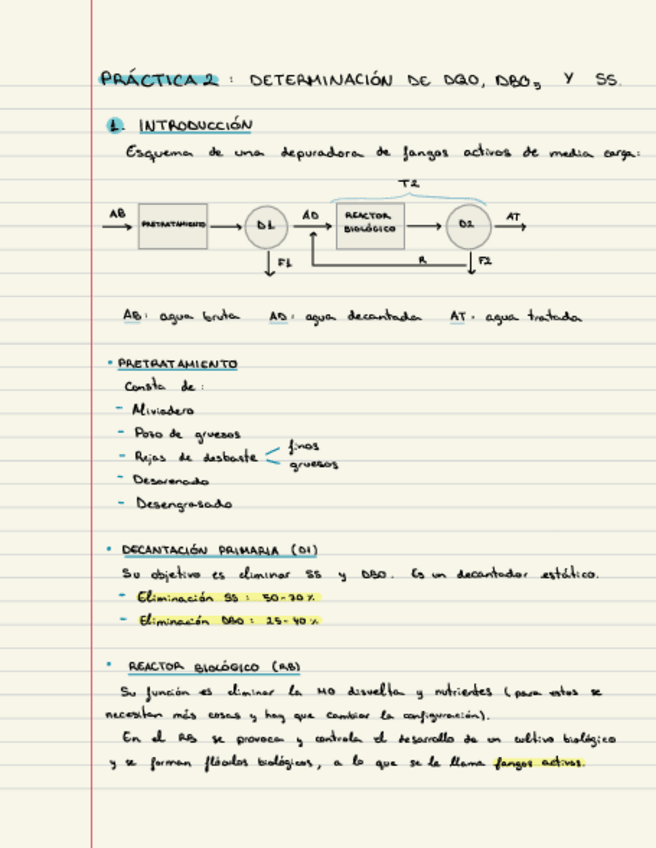 PRÁCTICA 2 : DETERMINACIÓN DE DQO, DBO5 Y SS.
1. INTRODUCCIÓN
Esquema de una depuradora de fangos activos de media carga:
T2
AB
PRETRATAMIENTO
D1
AD
REACTOR
BIOLÓGICO
D2
AT
F1
R
F2
AB: agua bruta AD: agua decantada AT: agua tratada
• PRETRATAMIENTO
Consta de :
- Aliviadero
- Pozo de gruesos
- Rejas de desbaste
finos
gruesos
- Desarenado
- Desengrasado
• DECANTACIÓN PRIMARIA (D1)
Su objetivo es eliminar SS y DBO. Es un decantador estático.
- Eliminación SS : 50-70%
- Eliminación DBO : 25-40%
• REACTOR BIOLÓGICO (RB)
Su función es eliminar la MO disuelta y nutrientes (para estos se
necesitan más cosas y hay que cambiar la configuración).
En el RB se provoca y controla el desarrollo de un cultivo biológico
y se forman flóculos biológicos, a lo que se le llama fangos activos.